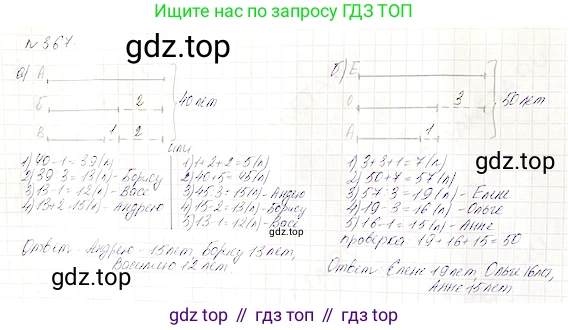 Ищите нас по запросу ГДЗ ТОП
N 367
gdz.top
а) А
Б 2 40 лет
В 1 2
б) Е
О 3 50 лет
А 1
или
1) 40-1=39(л)
3) 13-1=12(л) - Васе
4) 13+2=15(л) - Андрею
1) 1+2+2=5(л)
2) 40+5=45(л)
3) 45:3=15(л) - Андрею
4) 15-2=13(л) - Борису
5) 13-1=12(л) - Васе
1) 3+3+1=7(л)
2) 50+7=57(л)
3) 57:3=19(л) - Елене
4) 19-3=16(л) - Ольге
5) 16-1=15(л) - Анне
проверка 19+16+15=50
Ответ: Андрею - 15 лет, Борису 13 лет,
Василию 12 лет
gdz.top
gdz.top
Ответ Елене 19 лет, Ольге 16 лет,
Анне 15 лет
gdz top // гдз топ // гдз.top